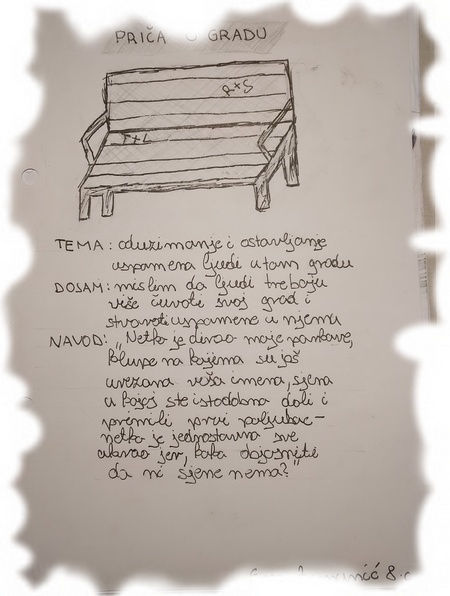 PRIČA O GRADU
R+S
T+L
TEMA: oduzimanje i ostavljanje
uspomena ljudi u tom gradu
DOJAM: mislim da ljudi trebaju
više čuvati svoj grad i
stvarati uspomene u njemu
NAVOD: „Netko je dirao moje parkove,
klupe na kojima su još
urezana vaša imena, sjena
u kojoj ste istodobno dali i
primili prvi poljubac –
netko je jednostavno sve
ukrao jer, kako objasniti
da ni sjene nema?"
8.